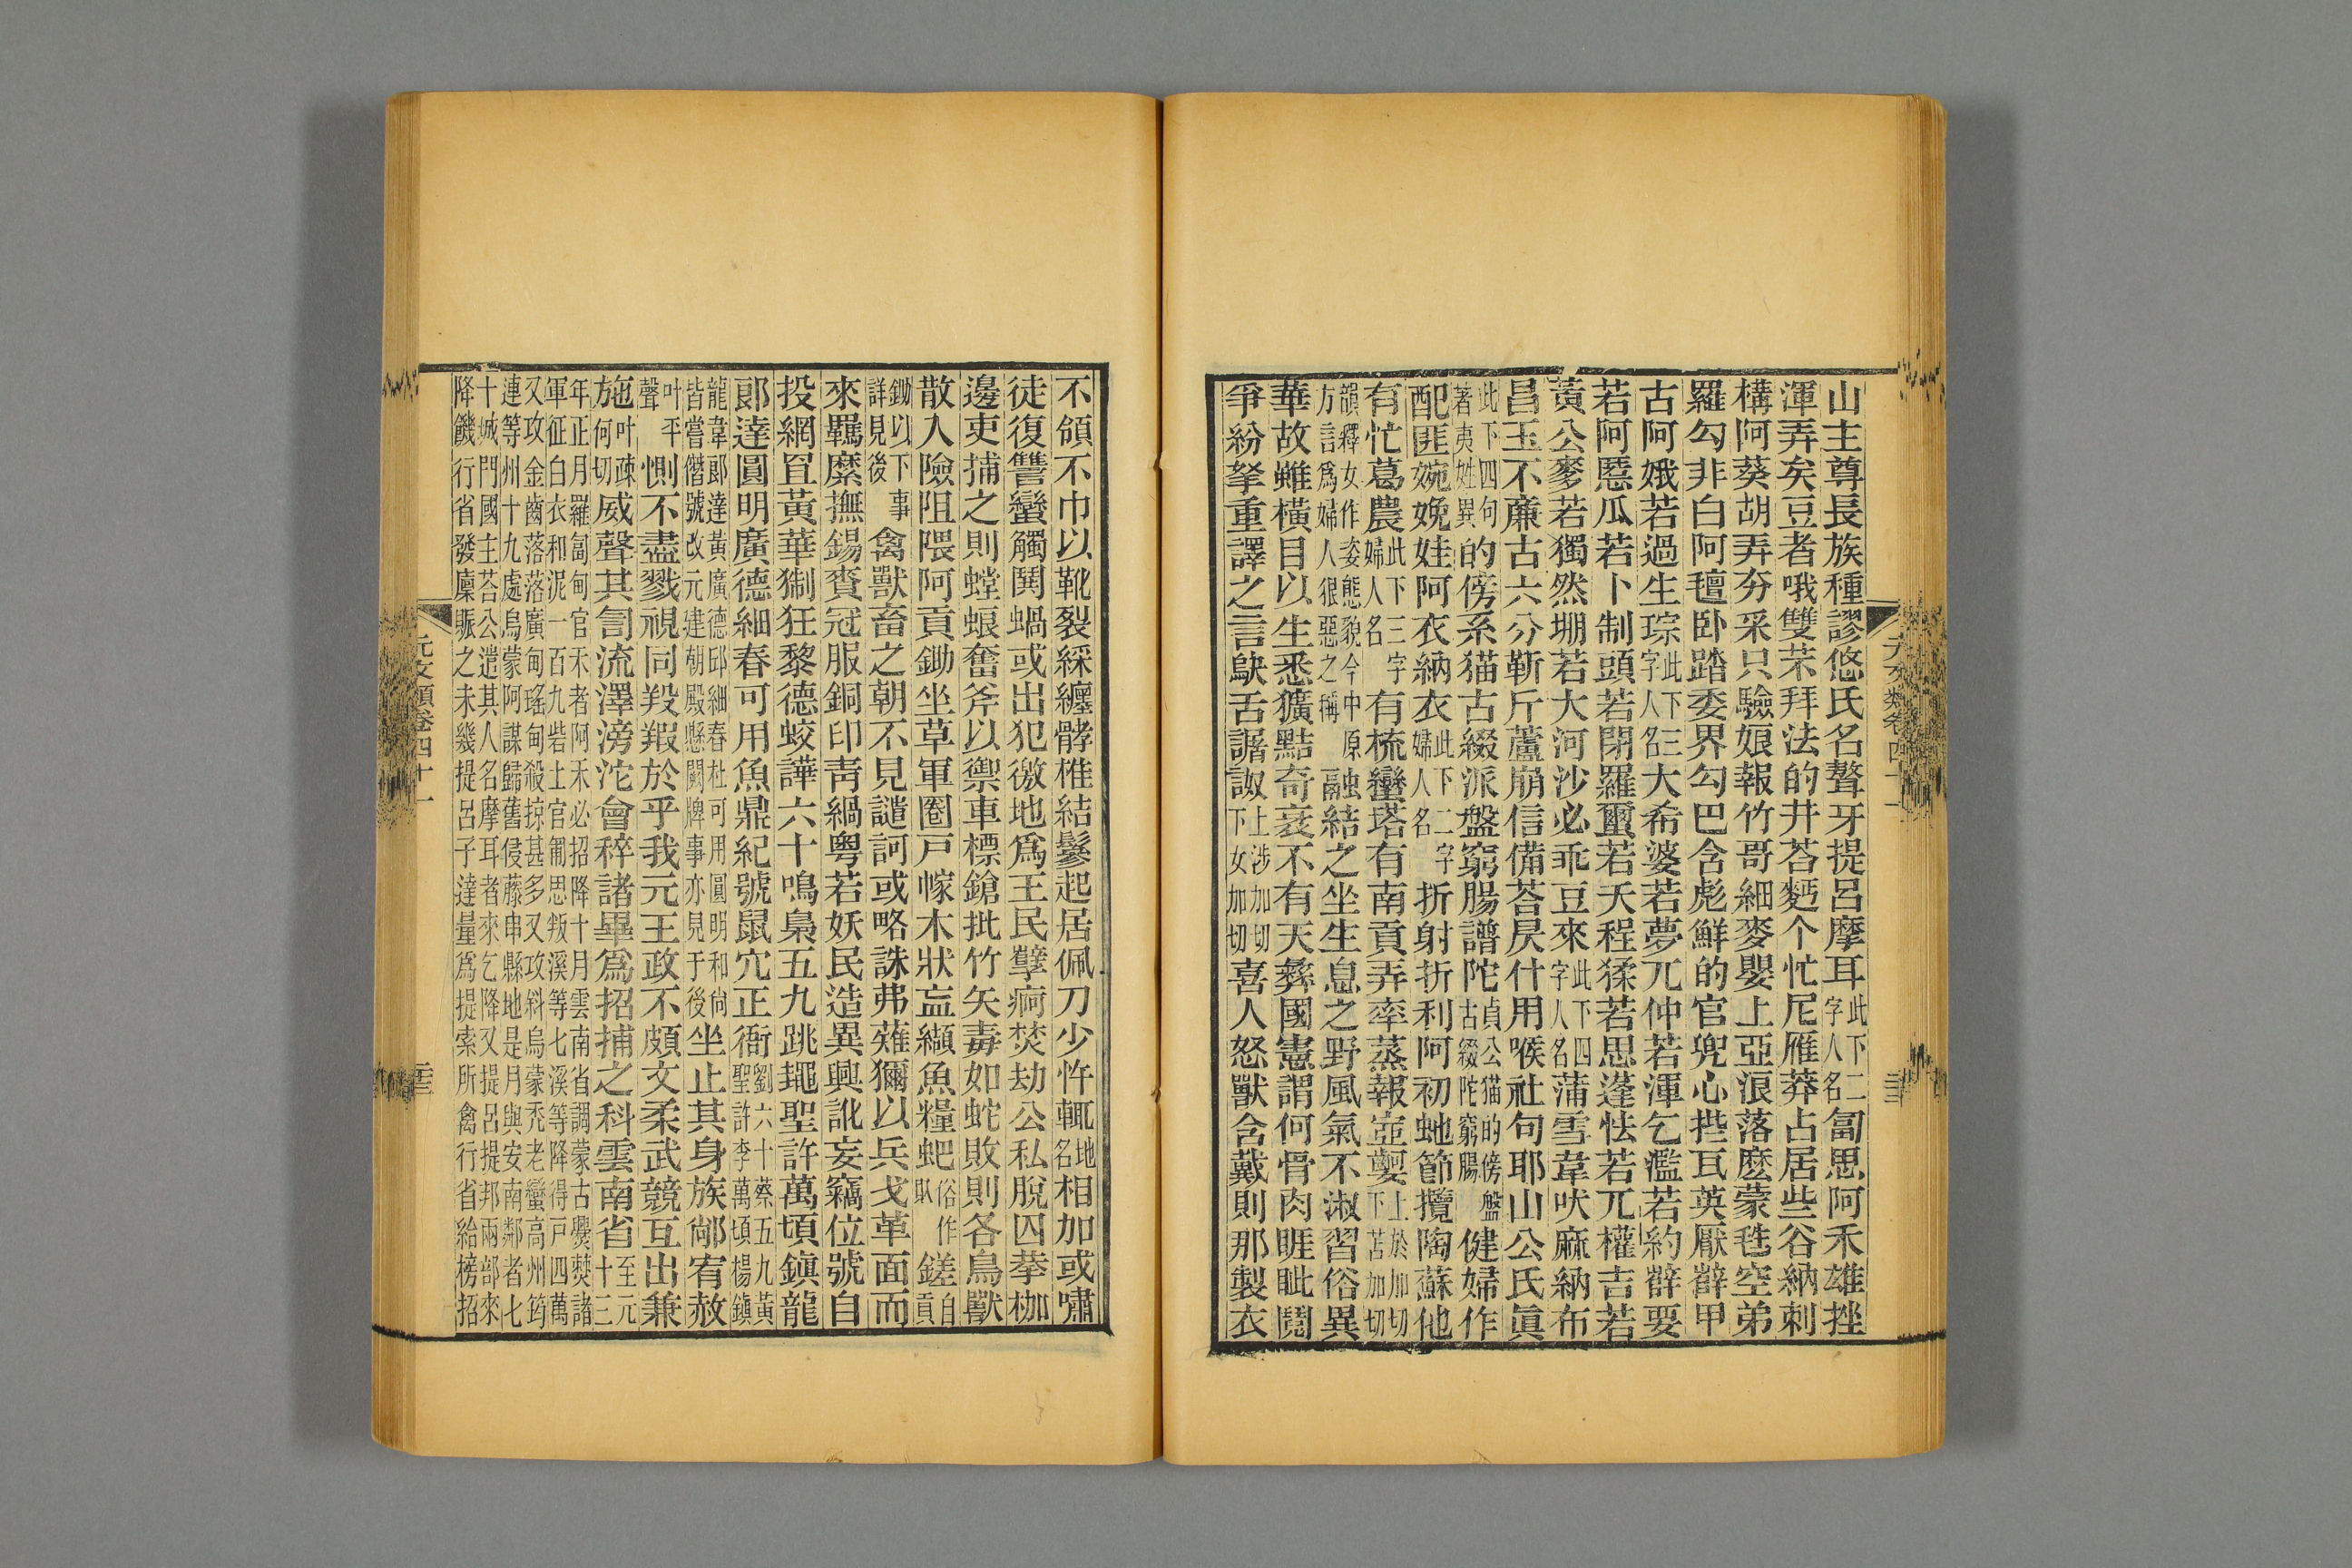 山主尊長族種謬悠氏名聱牙提呂摩耳此下二字人名匐思阿禾雄挫
渾弄矣豆者哦雙苶拜法的井荅麪个忙尼雁莽占居些谷納刺
構阿葵胡弄夯采只驗娘報竹哥細麥嬰上亞浪落麽蒙毶空弟
羅勾非白阿氊卧踏委界勾巴含彪鮮的官兜心挫瓦英厭辥甲
古阿娥若過生琮此下三字人名大希婆若夢兀仲若渾乞濫若約辥要
若阿慝瓜若卜制頭若閉羅璽若夭程猱若思蓬怯若兀權吉若
黃公麥若獨然堋若大河沙必乖豆來此下四字人名蒲雪韋吠麻納布
昌玉不亷古六分靳斤蘆崩信備荅昃什用喉社句耶山公氏眞
此下四句著夷姓異的傍系猫古綴派盤窮腸譜陀貞公猫的傍盤古綴陀窮腸健婦作
配匪婉娩娃阿衣納衣此下二字婦人名折射折利阿初虵節攬陶蘇他
有忙葛農此下三字婦人名有梳蠻塔有南貢弄牽蒸報壺㜸上於加切下苫加切
韻釋女作姿態貌今中原方言爲婦人狠惡之稱融結之坐生息之野風氣不淑習俗異
華故雖橫目以生悉獷黠奇衺不有天彝國憲謂何骨肉睚眦鬩
爭紛拏重譯之言鴃舌譇詉上涉加切下女加切喜人怒獸含戴則那製衣
元文類卷四十一
不領不巾以靴裂綵纏髀椎結鬖起居佩刀少忤輒地名相加或嘯
徒復讐蠻觸鬩蝸或出犯徼地爲王民孽痾焚劫公私脫囚拲枷
邊吏捕之則螳蜋奮斧以禦車標鎗批竹矢毒如蛇敗則各鳥獸
散入險阻隈阿貢鋤坐草軍圈戸幏木狀衁纈魚糧蚆俗作䝧鎈自貢
鋤以下事詳見後禽獸畜之朝不見譴訶或略誅弗薙獮以兵戈革面而
來羈縻撫錫賚冠服銅印靑緺粤若妖民造異興訛妄竊位號自
投網罝黃華猘狂黎德蛟譁六十鳴梟五九跳䵷聖許萬頃鎭龍
郞達圓明廣德細春可用魚鼎紀號鼠穴正衙劉六十蔡五九黃聖許李萬頃楊鎭
龍韋郞達黃廣德邱細春杜可用圓明和尙皆嘗僭號改元建朝殿懸闕牌事亦見于後坐止其身族鄰宥赦
叶平聲惻不盡戮視同羖羖於乎我元王政不頗文柔武競互出兼
施叶疎何切威聲其訇流澤滂沱會稡諸畢爲招捕之科雲南省至元十三
年正月羅匐甸官禾者阿禾必招降十月雲南省調蒙古爨僰諸軍征白衣和泥一百九砦土官匍思叛溪等七溪等降得戸四萬
又攻金齒落落廣甸瑤甸殺掠甚多又攻斜烏蒙秃老蠻高州筠連等州十九處烏蒙阿謀歸舊侵藤串縣地是月與安南鄰者七
十城門國主荅公遣其人名摩耳者來乞降又提呂提邦兩部來降饑行省發廩賑之未幾提呂子達量爲提索所禽行省給榜招
元文類卷四十一